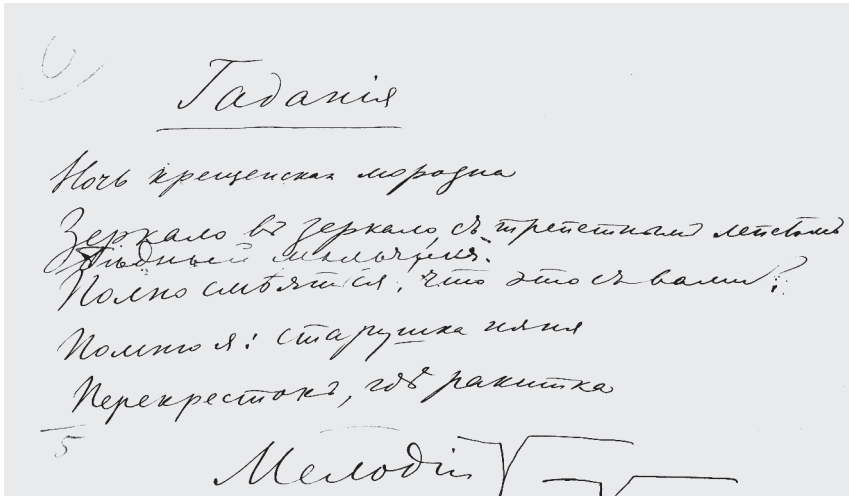 Гаданія
Ночь крещенская морозна
Зеркало въ зеркало, съ трепетнымъ лепетомъ
Полно смѣятся, что это съ вами?
Помню я: старушка няня
Перекрестокъ, гдѣ ракитка
5
Мелодіи